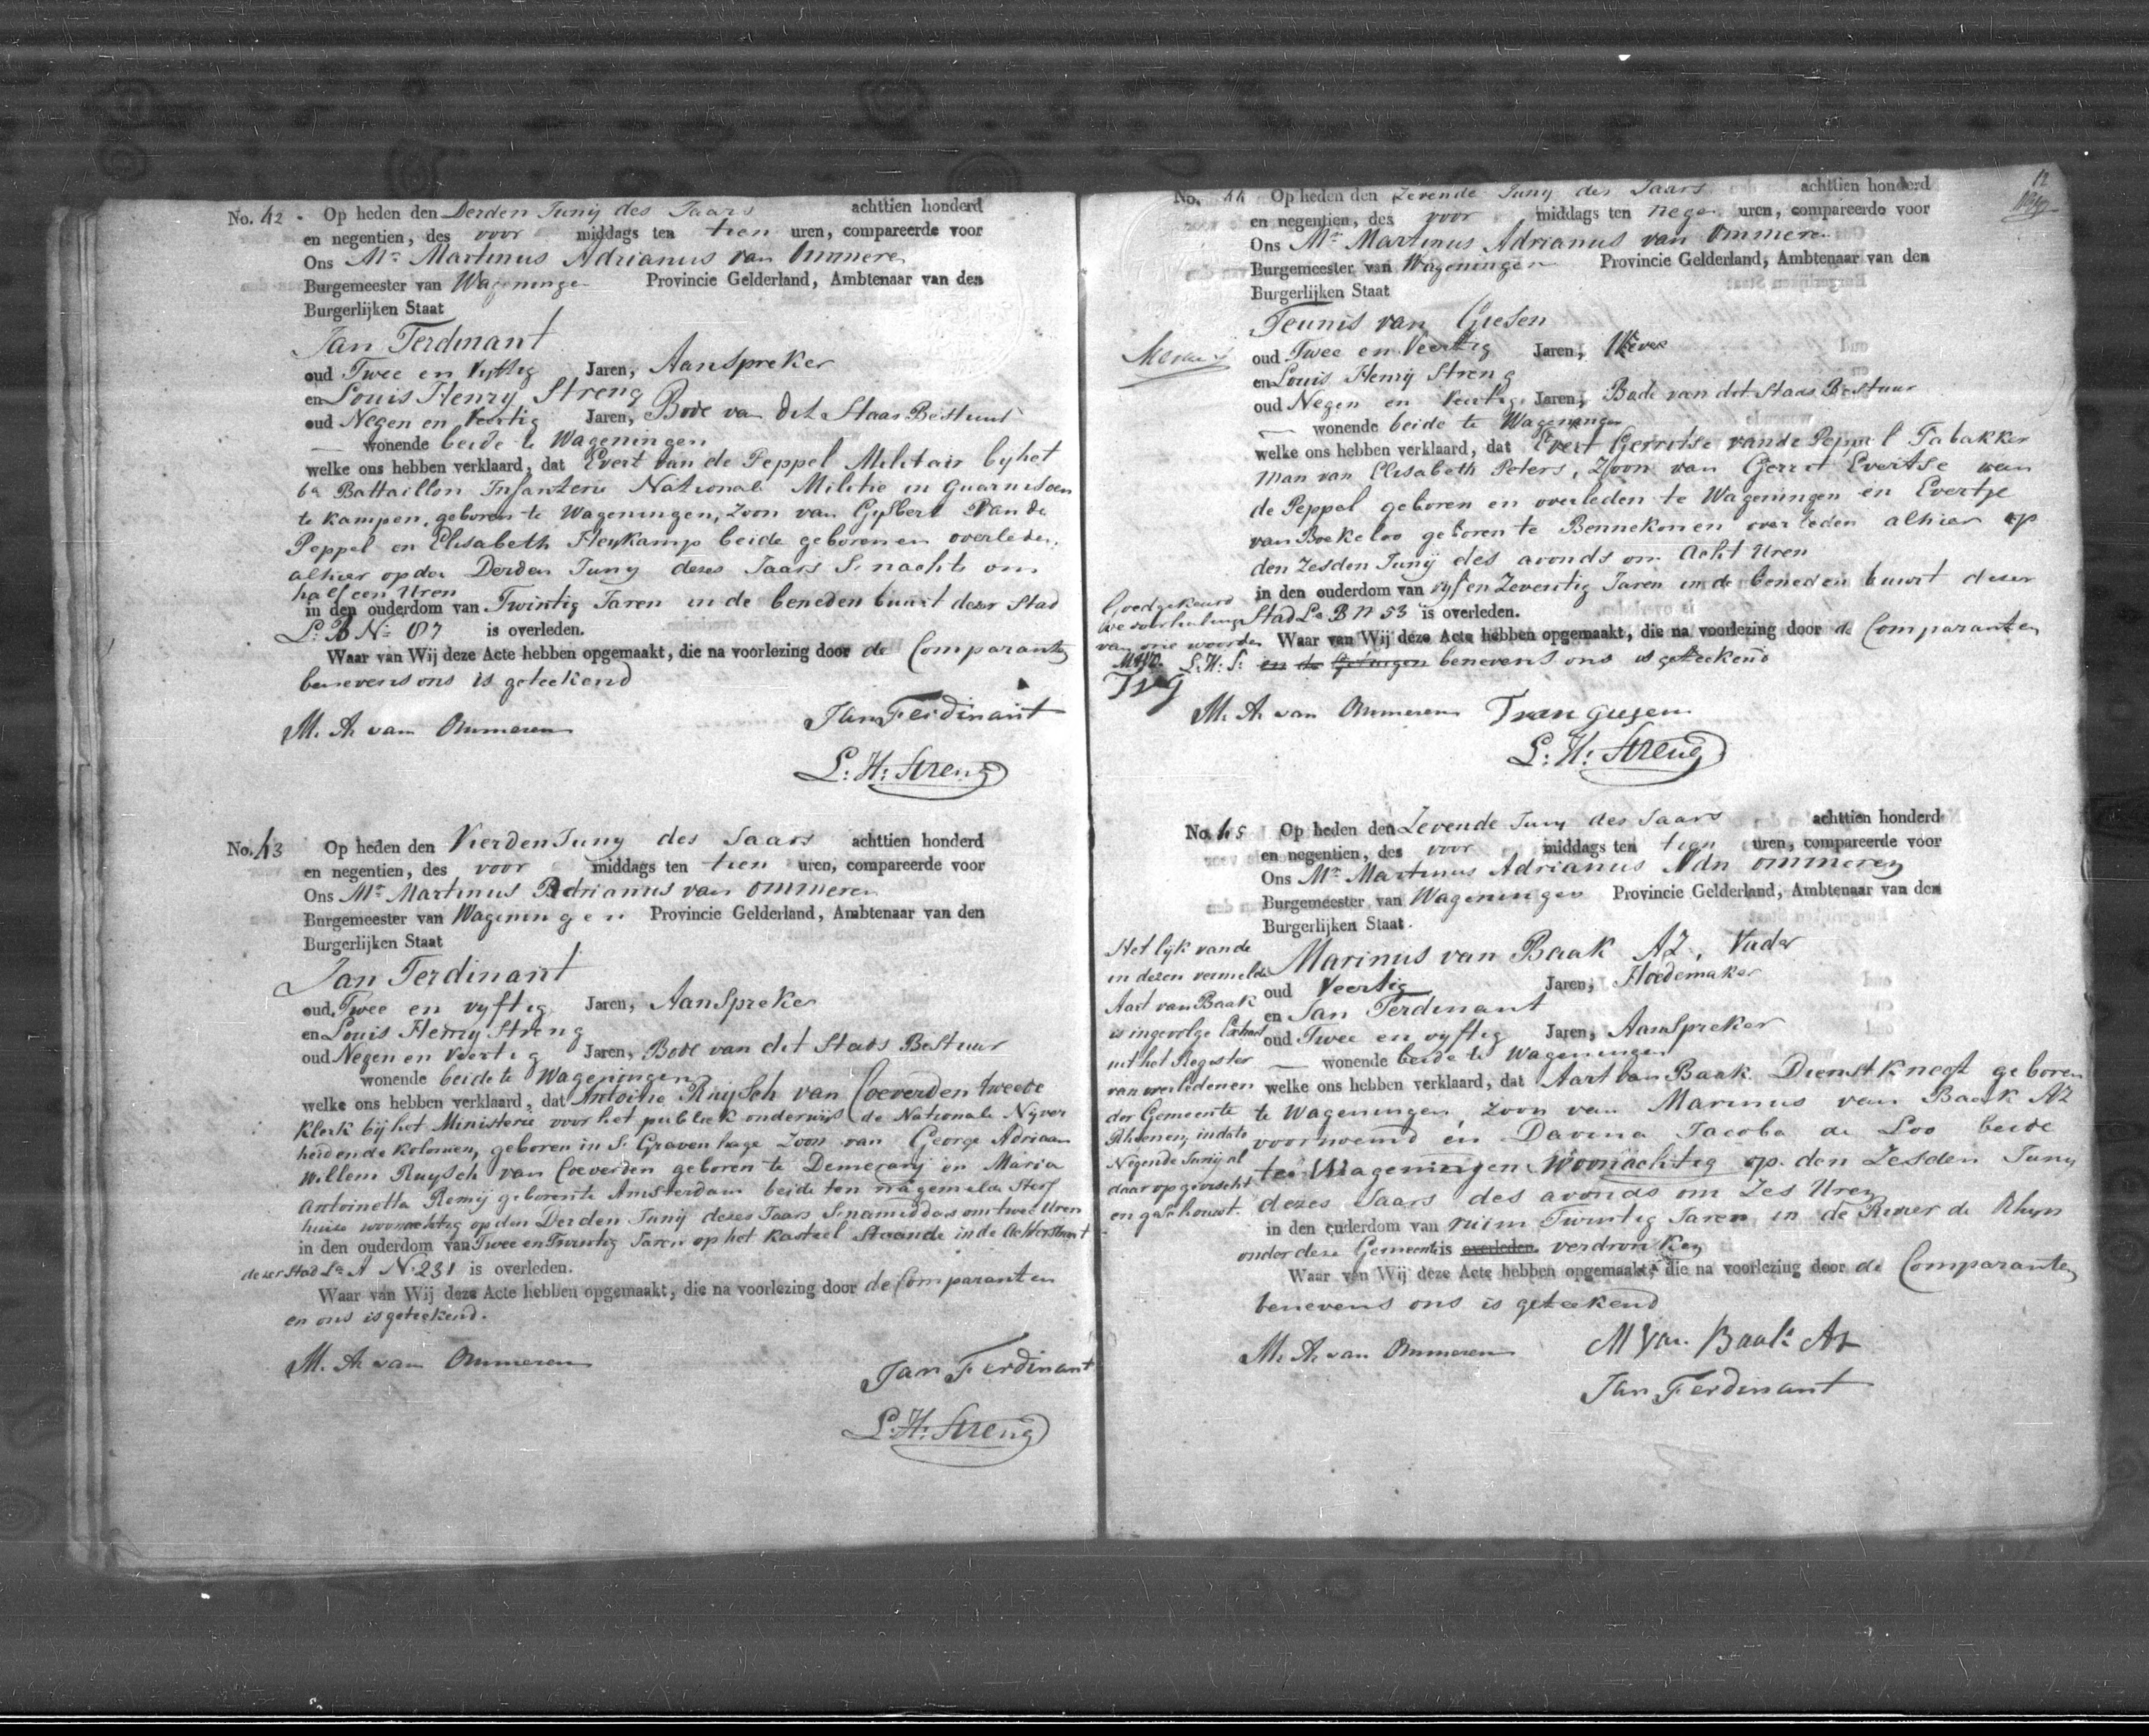 No. 42. Op heden den Derden Juny des Jaars achttien honderd
en negentien, des voor middags ten tien uren, compareerde voor
Ons Mr. Martinus Adrianus van Ommeren
Burgemeester van Wageningen Provincie Gelderland, Ambtenaar van den
Burgerlijken Staat
Jan Ferdinant
oud Twee en Vyftig Jaren, AanSpreker
en Louis Henry Streng
oud Negen en Veertig Jaren, Bode van dit Staas Bestuur
wonende beide te Wageningen
welke ons hebben verklaard, dat Evert van de Peppel Militair by het
6e Battaillon Infanterie Nationale Militie in Guarnisoen
te Kampen, geboren te Wageningen, Zoon van Gysbert van de
Peppel en Elisabeth Heykamp beide geboren en overleden
alhier op den Derden Juny dezes Jaars S. nachts om
half een Uren
in den ouderdom van Twintig Jaren in de beneden buurt dezer Stad
La: B No: 87 is overleden.
Waar van Wij deze Acte hebben opgemaakt, die na voorlezing door de Comparanten
benevens ons is geteekend
M. A. van Ommeren Jan Ferdinant
L: H: Streng
No. 43 Op heden den Vierden Juny des Jaars achttien honderd
en negentien, des voor middags ten tien uren, compareerde voor
Ons Mr. Martinus Adrianus van Ommeren
Burgemeester van Wageningen Provincie Gelderland, Ambtenaar van den
Burgerlijken Staat
Jan Ferdinant
oud Twee en vyftig Jaren, AanSpreker
en Louis Henry Streng
oud Negen en Veertig Jaren, Bode van dit Stads BeStuur
wonende beide te Wageningen
welke ons hebben verklaard, dat Antoine RuySch van Coeverden tweede
Klerk bij het Ministerie voor het publiek onderwijs de Nationale Nyver
heid en de Kolonien, geboren in S. Gravenhage Zoon van George Adriaan
Willem Ruysch van Coeverden geboren te Demerary en Maria
Antoinetta Remy geboren te Amsterdam beide ten nagemelde Sterf
huise woonachtig op den Derden Juny dezes Jaars S. namiddags om twee Uren
in den ouderdom van Twee en Twintig Jaren op het Kasteel Staande in de Achterstraat
dezer Stad La A No. 231 is overleden.
Waar van Wij deze Acte hebben opgemaakt, die na voorlezing door de Comparanten
en ons is geteekend.
M. A. van Ommeren Jan Ferdinant
L: H: Streng
12
No. 44 Op heden den Zevende Juny des Jaars achttien honderd
en negentien, des voor middags ten negen uren, compareerde voor
Ons Mr. Martinus Adrianus van Ommeren
Burgemeester van Wageningen Provincie Gelderland, Ambtenaar van den
Burgerlijken Staat
Teunis van Giesen
oud Twee en Veertig Jaren,
en Louis Henry Streng
oud Negen en Veertig Jaren, Bode van dit Staas Bestuur
wonende beide te Wageningen
welke ons hebben verklaard, dat Evert Gerritse van de Peppel Tabakker
Man van Elisabeth Peters, Zoon van Gerrit Evertse van
de Peppel geboren en overleden te Wageningen en Evertje
van Boekeloo geboren te Bennekom en overleden alhier op
den Zesden Juny des avonds om Acht Uren
in den ouderdom van vyf en Zeventig Jaren in de beneden buurt dezer
Stad La B No 53 is overleden.
Waar van Wij deze Acte hebben opgemaakt, die na voorlezing door de Comparanten
en de Getuigen benevens ons is geteekend
Goedgekeurd
de doorhaling
van drie woorden
MAVO. L: H: S:
TvG
M. A. van Ommeren T van giesen
L: H: Streng
No. 45 Op heden den Zevende Juny des Jaars achttien honderd
en negentien, des voor middags ten tien uren, compareerde voor
Ons Mr. Martinus Adrianus Van Ommeren
Burgemeester van Wageningen Provincie Gelderland, Ambtenaar van den
Burgerlijken Staat.
Marinus van Baak AZ, Vader
oud Veertig Jaren, Hoedemaker
en Jan Ferdinant
oud Twee en vyftig Jaren, AanSpreker
wonende beide te Wageningen
welke ons hebben verklaard, dat Aart van Baak Dienstknegt geboren
te Wageningen, Zoon van Marinus van Baak AZ
voornoemd en Davina Jacoba de Loo beide
te Wageningen Woonachtig op den Zesden Juny
dezes Jaars des avonds om Zes Uren
in den ouderdom van ruim Twintig Jaren in de Rivier de Rhyn
onder deze Gemeente is overleden. verdronken
Waar van Wij deze Acte hebben opgemaakt, die na voorlezing door de Comparanten
benevens ons is geteekend
Het lijk van de
in dezen vermelde
Aart van Baak
is ingevolge Extract
uit het Register
van overledenen
der Gemeente
Rhenen, in dato
Negende Junij al
daar opgevischt
en geschouwt.
M. A. van Ommeren M van Baak Az
Jan Ferdinant